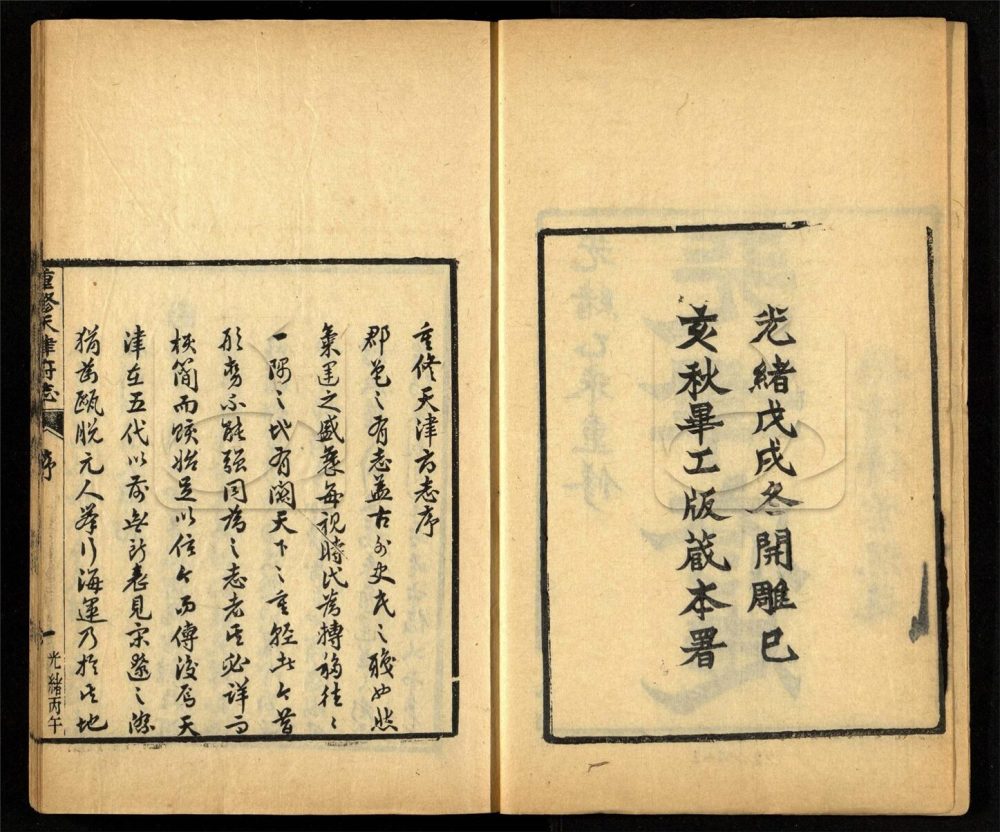 光緒戊戌冬開雕巳
亥秋畢工版蔵本署
重修天津府志序
郡邑之有志蓋古外史氏之職也然
氣運之盛衰每視時代為轉移往往
一隅之地有關天下之重輕此今昔
形勢不能強同為之志者其必詳而
核簡而賅始足以信今而傳後焉天
津在五代以前無所表見宋遼之際
猶為甌脫元人舉行海運乃於其地
重修天津府志 序 一 光緒丙午